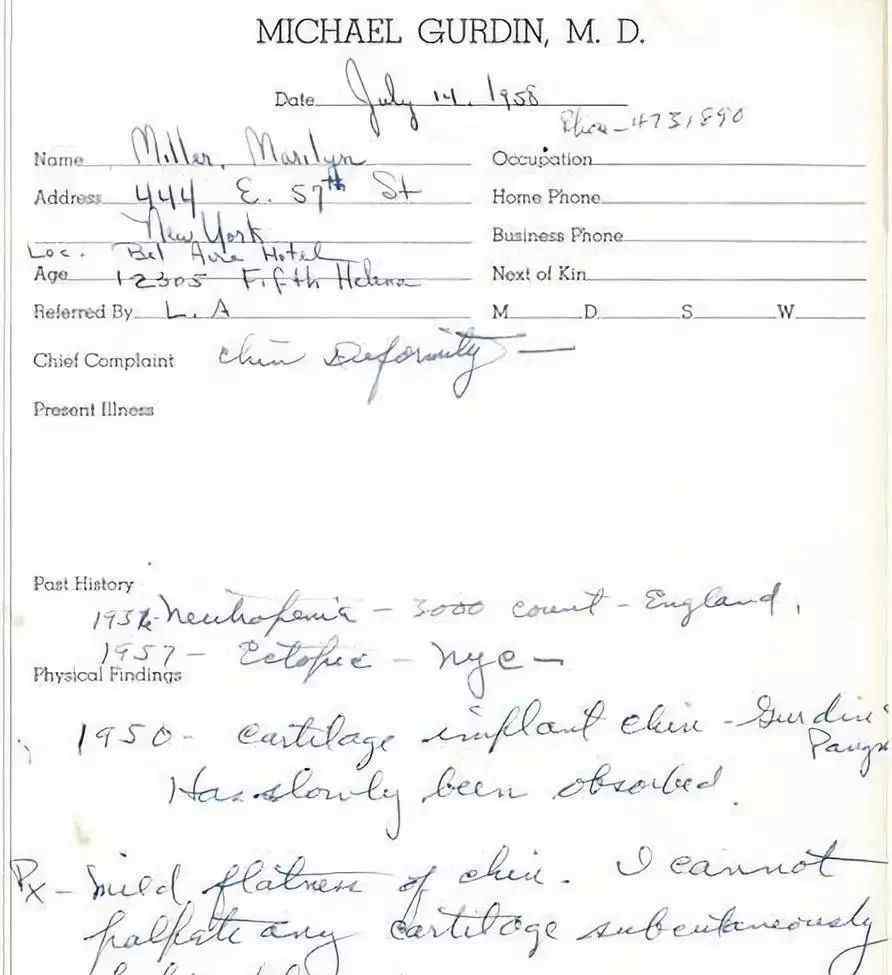 MICHAEL GURDIN, M. D.
Date July 14, 1958
Phone-4731890
Name Miller, Marilyn
Occupation
Address 444 E. 57th St
Home Phone
New York
Business Phone
Loc. Bel Aire Hotel
Age 12305 Fifth Helena
Next of Kin
Referred By L. A
M D S W
Chief Complaint Chin Deformity —
Present Illness
Past History
Neutropenia - 3000 count - England,
1957 - Ectopic - NYC -
Physical Findings
1950 - cartilage implant chin - Gurdin
Has slowly been absorbed.
Px - Mild flatness of chin. I cannot
palpate any cartilage subcutaneously